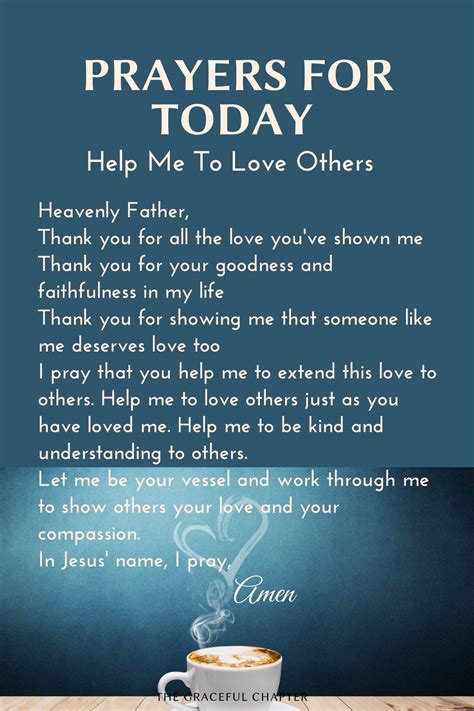 PRAYERS FOR
TODAY
Help Me To Love Others
Heavenly Father,
Thank you for all the love you've shown me
Thank you for your goodness and
faithfulness in my life
Thank you for showing me that someone like
me deserves love too
I pray that you help me to extend this love to
others. Help me to love others just as you
have loved me. Help me to be kind and
understanding to others.
Let me be your vessel and work through me
to show others your love and your
compassion.
In Jesus' name, I pray,
Amen
THE GRACEFUL CHAPTER